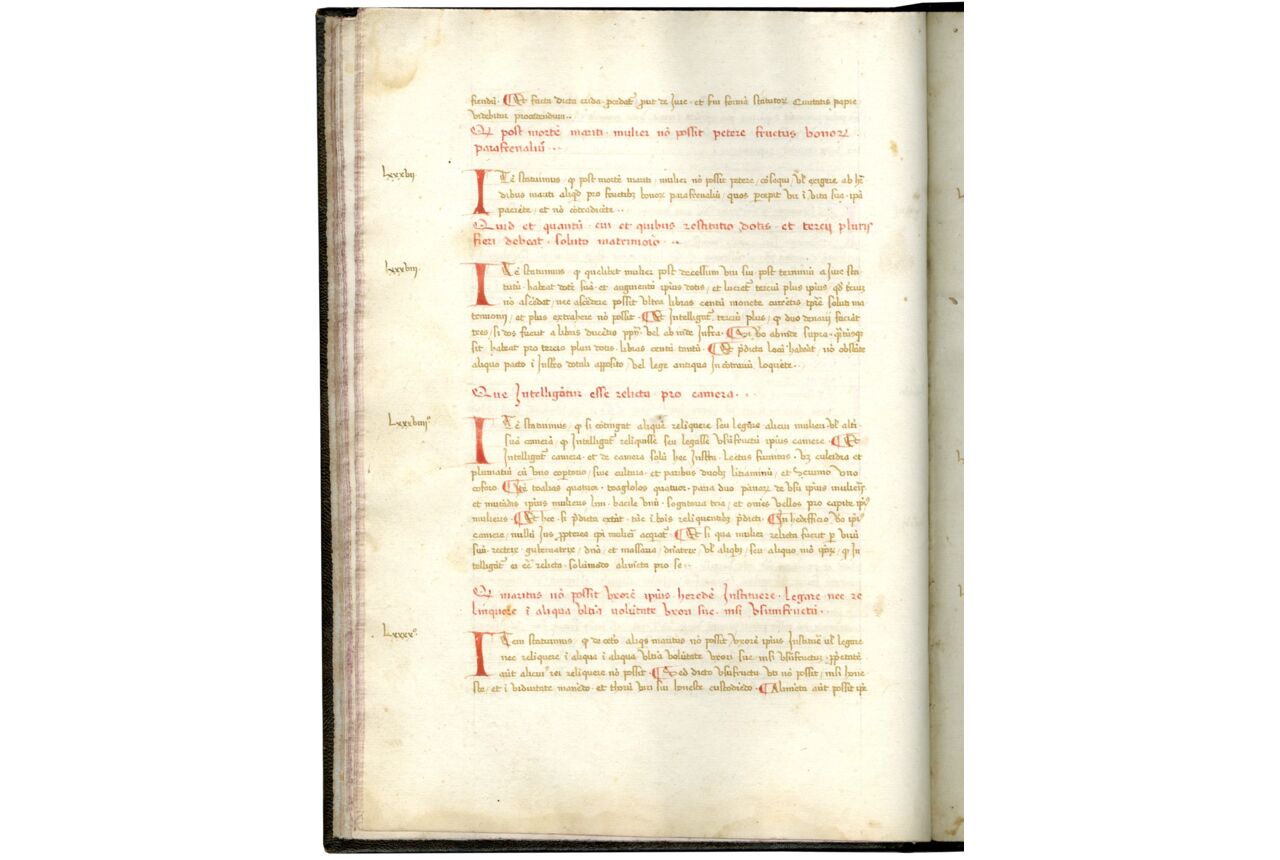 fiendū. Et facta dicta crida. procedat prout de Jure. et scdm formā statutor Civitatis papie
videbitur procedendum..
Q post mortē mariti. mulier nō possit petere fructus bonorꝝ
parafrenaliū..
Lxxxvij
ITē statuimus. q post mortē mariti. mulier nō possit petere, cōsequi, vl exigere ab hr̄
dibus mariti aliqd pro fructibꝫ bonorꝝ parafrenaliū, quos percepit vir ī vita sua. ipā
paciēte, et nō cōtradicēte..
Quid et quantū. cui et quibus restitutio dotis. et tercij pluris
fieri debeat. soluto matrimonio..
Lxxxviij
ITē statuimus, q quelibet mulier post decessum viri sui. post terminū a Jure sta-
tutū. habeat dotē suā. et augmentū ipius dotis, et lucret tercium plus ipius, qd terciū
nō ascēdat, nec ascēdere possit ultra libras centū monete currētis tpre soluti ma
trimonij, et plus extrahere nō possit. Et Intelligat terciū plus, q duo denarij faciāt
tres, si dos fuerit a libris ducētis ppn̄. vel ab inde infra. Si vo abinde supra. qntūcūqꝫ
sit. habeat pro tercio pluri dotis. libras centū tantū. Et pdicta locū habeāt, nō obstāte
aliquo pacto ī Instrō dotali apposito, vel lege antiqua In cōtrariū loquēte..
Que Intelligātur esse relicta pro camera..
Lxxxviiijº
ITē statuimus, q si cōtingat aliquē reliquere seu legare alicui mulieri vl alii
suā camerā, q Intelligat reliquisse seu legasse vsūfructū ipius camere. Et
Intelligat camera, et de camera solū hec Infra. Lectus furnitus. vꝫ culcidra et
plumatiū cū vno copertorio, sive cultura. et paribus duobꝫ lītiaminū, et scrinio vno
coforo. Itē toalias quatuor. toagloLos quatuor. paria duo pānorꝝ de vsu ipius mulieris
et mutādis ipius mulieris iiij. bacile vnū. sogatoria tria, et omēs vellos pro capite ipius
mulieris. Et hec. si pdicta extāt. tūc ī bōis reliquentibꝫ pdicti. In hedifficio vo ipius
camere, nullū Jus ppterea ipi mulieri acqrat. Et si qua mulier relicta fuerit p virū
suū. rectrix, gubernatrix, dnā, et massaria, dnatrix, vl aliqbꝫ, seu aliquo mō ipōrꝝ, q In
telligat ei eē relicta. solūmōdo alimēta pro se..
Q maritus nō possit vxorē ipius heredē Instituere. legare nec re
linquere ī aliqua vltīa volūtate vxori sue. nisi vsumfructū..
Lxxxxº
ITem statuimus, q de cetō aliqs maritus nō possit vxorē ipius Instituē vl legare
nec reliquere ī aliqua ī aliqua vltīa volūtate vxori sue nisi vsūfructus. ppetatē
aūt alicuiꝰ rei reliquere nō possit. Sed dicto vsūfructu vti nō possit, nisi hone
ste, et ī viduitate manēdo. et thorū viri sui honeste custodiēdo. Alimēta aūt possit ipe